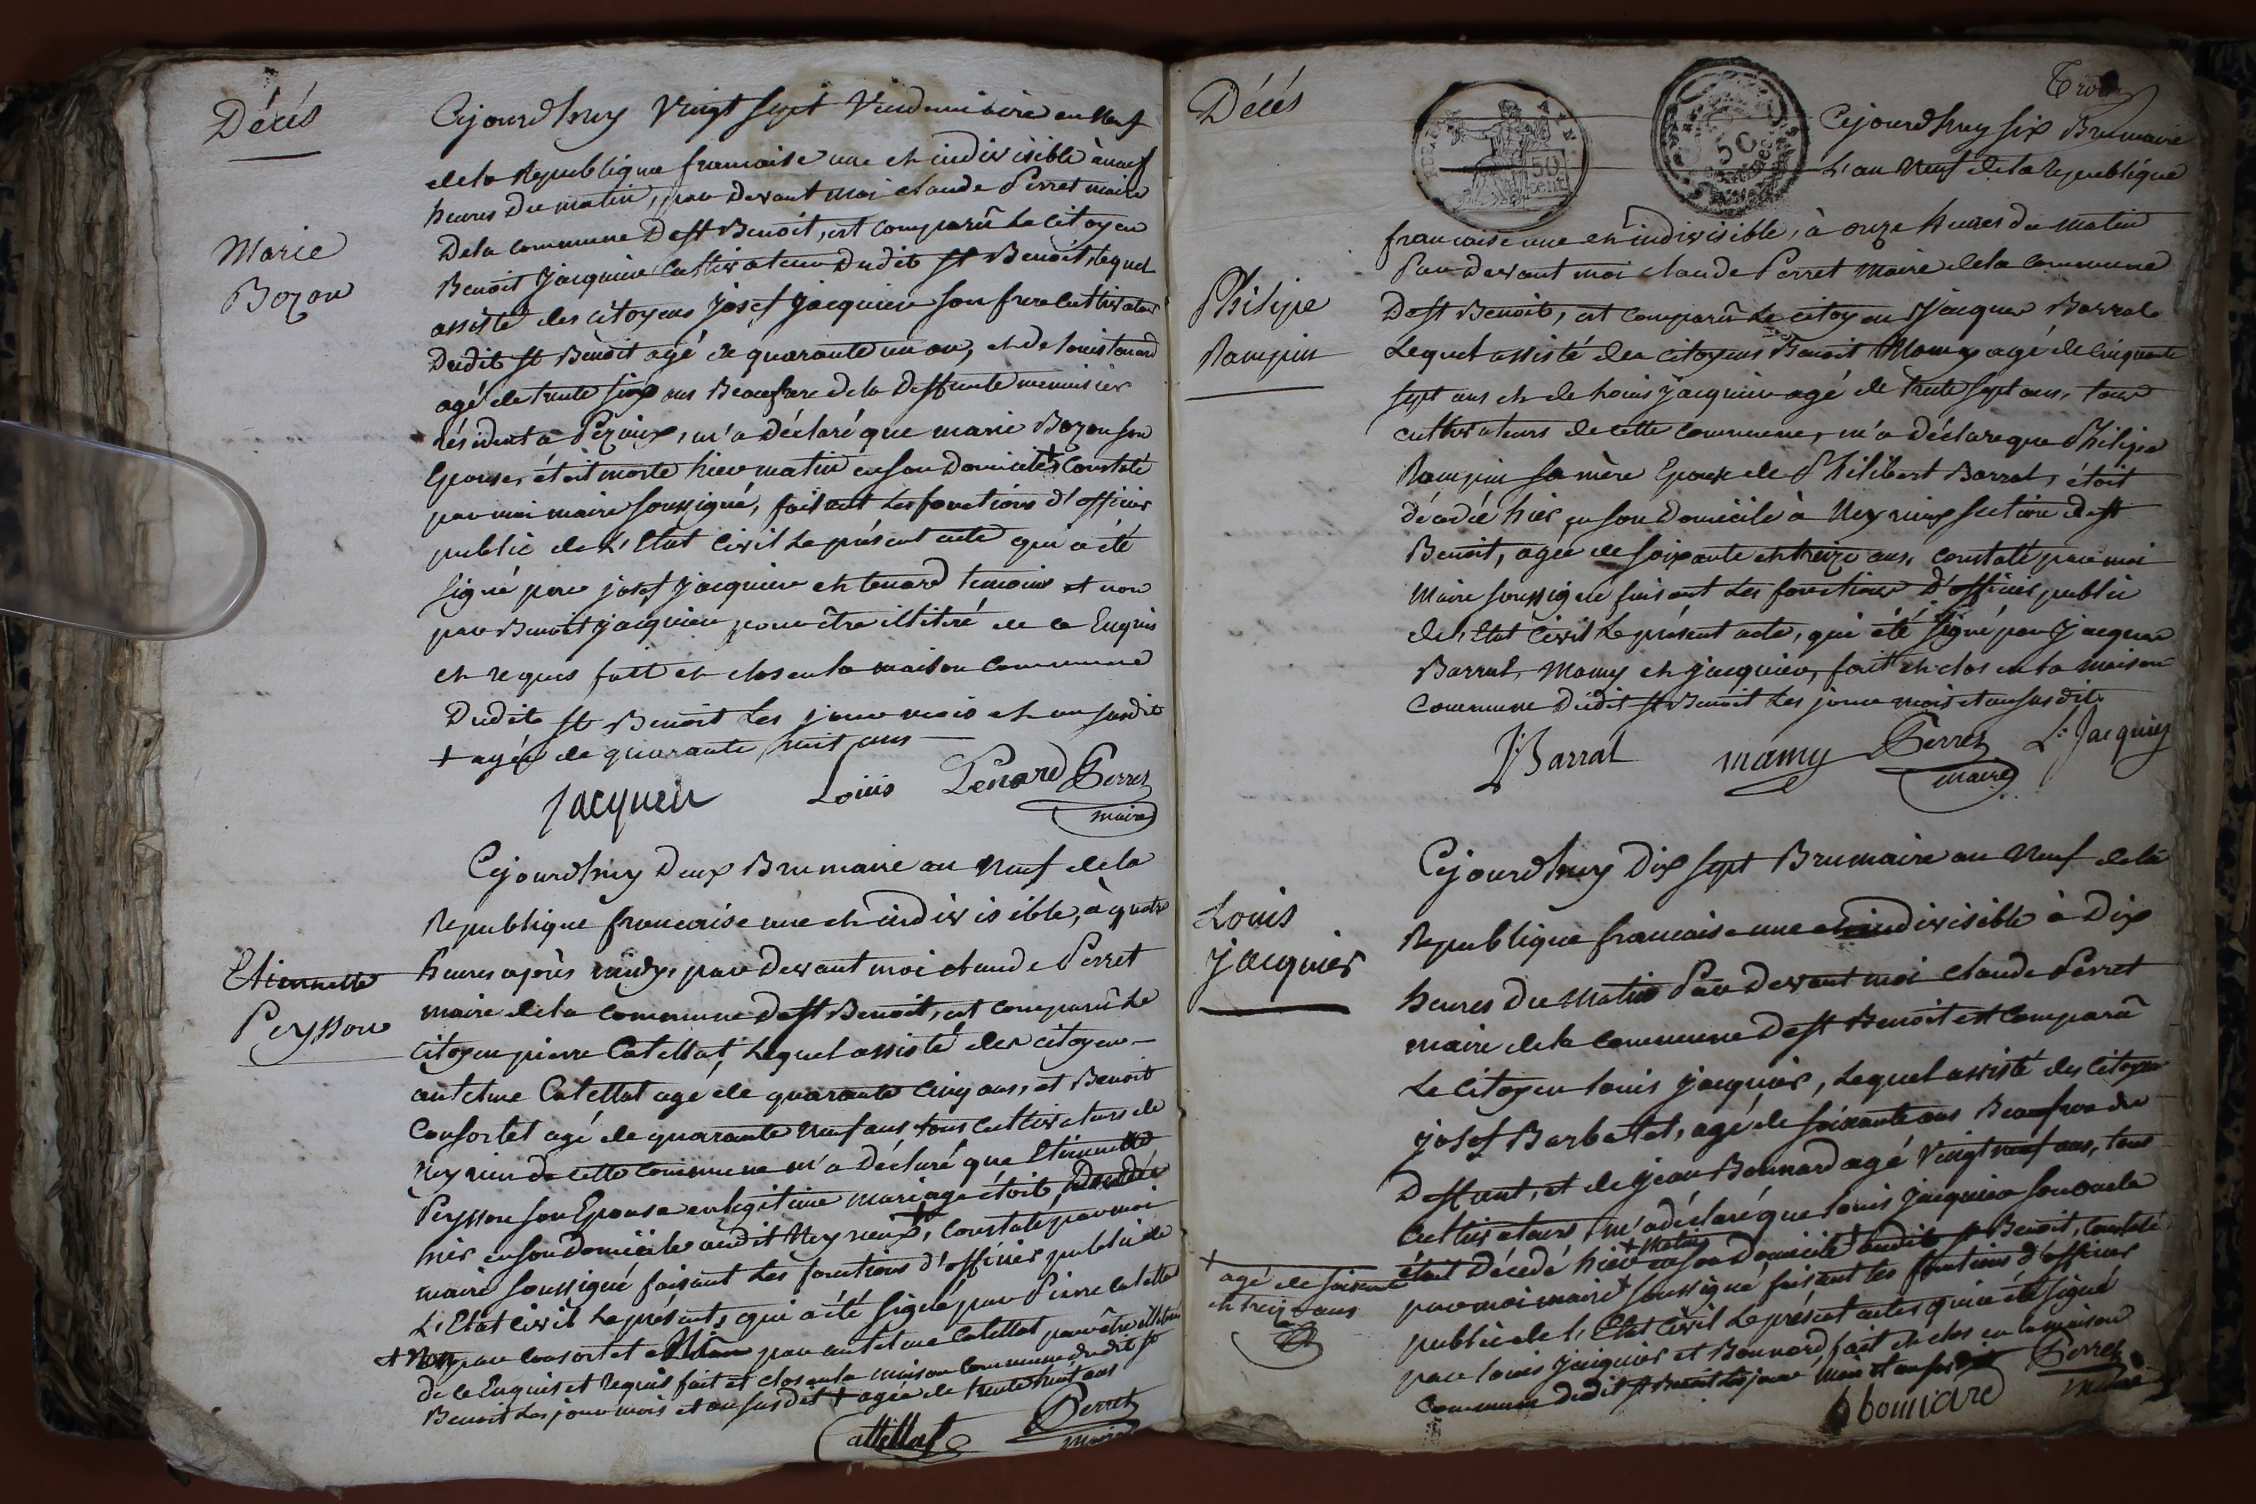 Décés
Cejourdhuy Vingt sept Vendemiaire an Neuf
de la Republique francaise une et indivisible à neuf
heures du matin, par devant moi claude Perret maire
Marie
Bozon
De la commune De St Benoit, est comparû Le citoyen
Benoit Jacquier Cultivateur Dudit St Benoit, lequel
assisté des citoyens Josef Jacquier son frere cultivateur
Dudit St Benoit agé de quarante un an, et de Louis tenard
agé de trente six ans Beaufrere de la Deffunte menuisier
résident à Pezieux, m'a déclaré que marie Bozon son
Epouse, étoit morte hier matin en son Domicile + Constaté
par moi maire soussigné, faisant les fonctions d'officier
public de L'Etat Civil Le présent acte qui a été
signé par josef Jacquier et tenard temoins et non
par Benoit jacquier pour être illitéré de ce Enquis
et requis fait et clos en la maison Commune
Dudit St Benoit Les jour mois et an susdit
+ agée de quarante huit ans
Jacquier Louis Tenard Perret
maire
Cejourdhuy Deux Brumaire an Neuf de la
Republique francaise une et indivisible, à quatre
Etiennette
Peysson
heures après midy, par devant moi claude Perret
maire de la Commune De St Benoit, est comparû Le
Citoyen pierre Catellat, Lequel assisté des citoyens
antelme Catellat agé de quarante Cinq ans, et Benoit
Consortet agé de quarante Neuf ans tous Cultivateurs de
Neyrieu de cette Commune m'a Déclaré que Etiennette
Peysson son Epouse en legitime mariage étoit Décédée
hier en son Domicile audit Neyrieux +, Constaté par moi
maire soussigné faisant Les fonctions d'officier public de
L'Etat Civil Le présent, qui a été signé par Pierre Catellat
+ Non par Consortet par antelme Catellat pour être illitéré
de ce Enquis et Requis fait et clos en la maison Commune dudit St
Benoit Les jour mois et an susdit + agée de trente huit ans
Catellat Perret
maire
Décés
50
cent
Cejourdhuy six Brumaire
L'an Neuf de la Republique
francaise une et indivisible, à onze heures du matin
Par devant moi claude Perret Maire de la Commune
Philipe
Rampin
De St Benoit, est comparû Le citoyen Jacques Barral
Lequel assisté des citoyens Benoit Mamy agé de Cinquante
sept ans et de Louis jacquier agé de trente sept ans, tous
cultivateurs de cette Commune, m'a Déclaré que Philipe
Rampin sa mère Epouse de Philibert Barral, étoit
décédée hier en son Domicile à Neyrieux section de St
Benoit, agée de soixante et treize ans, constaté par moi
Maire soussigné faisant Les fonctions D'officier public
de L'Etat Civil Le présent acte, qui été signé par jacques
Barral, Mamy et jacquier, fait et clos en la maison
Commune Dudit St Benoit Les jour mois et an susdit
J Barral mamy Perret L. Jacquier
maire
Cejourdhuy Dix sept Brumaire an Neuf de la
Louis
Jacquier
Republique francaise une et indivisible à Dix
heures Du Matin Par devant moi claude Perret
maire de la Commune De St Benoit est Comparû
Le Citoyen Louis jacquier, Lequel assisté des Citoyens
josef Barbetet, agé de soixante ans Beaufrere du
Deffunt, et de jean Bonnard agé Vingt neuf ans, tous
Cultivateurs, m'a déclaré que Louis jacquier son oncle
étoit Décédé hier + Matin en son Domicile audit St Benoit, constaté
+ agé de soixante
et treize ans
par moi maire soussigné faisant les fonctions d'officier
public de L'Etat Civil Le présent acte, qui a été signé
par Louis jacquier et Bonnard, fait et clos en la maison
Commune dudit St Benoit Les jour mois et an susdit Perret
bonnard maire